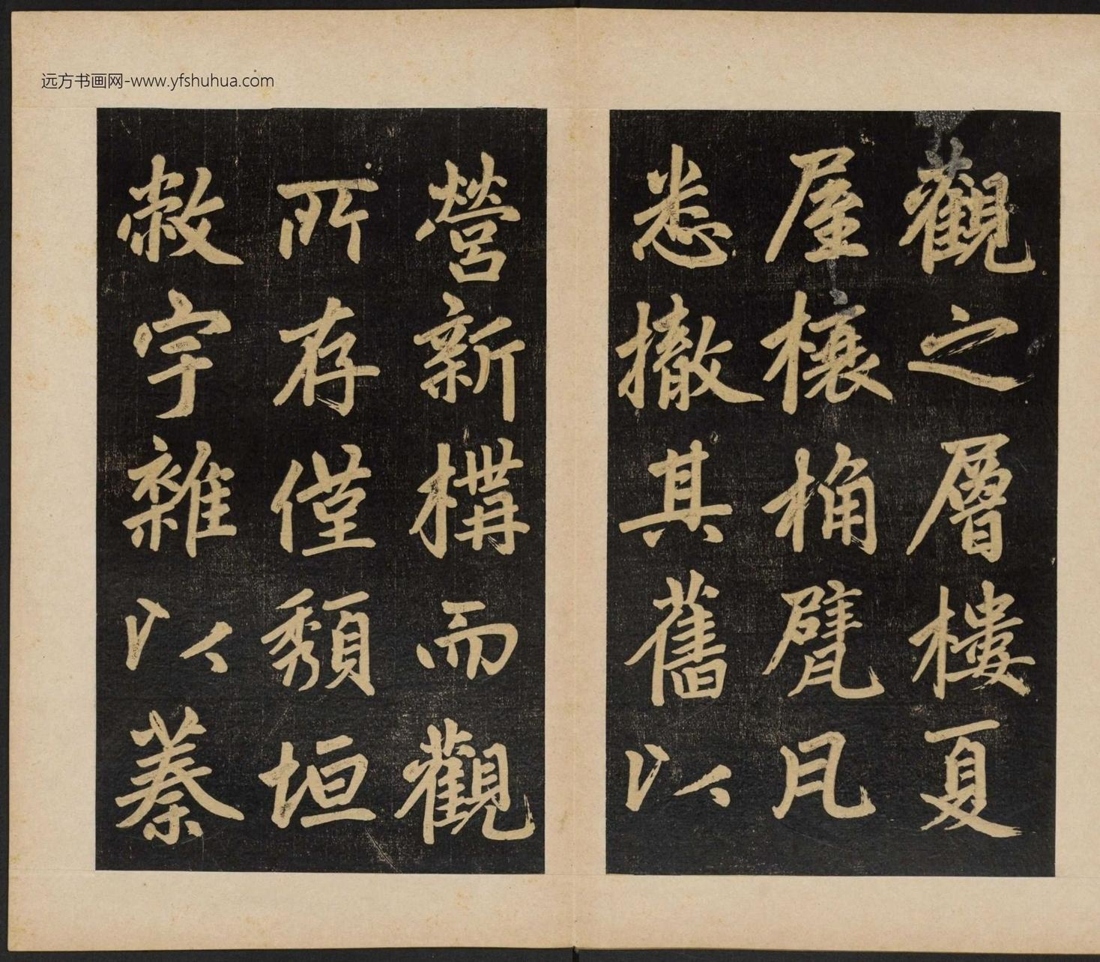 远方书画网-www.yfshuhua.com
觀之層樓夏
屋榱桷甓凡
悉撤其舊以
營新構而觀
所存僅頹垣
敝宇雜以蓁